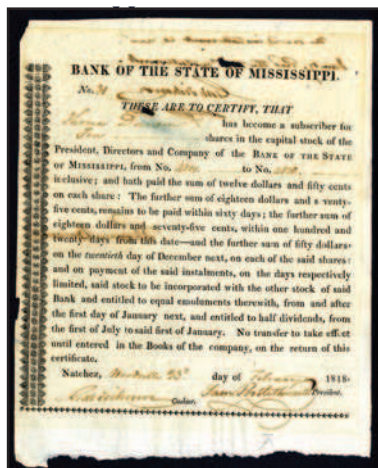 BANK OF THE STATE OF MISSISSIPPI.
No. 31
THESE ARE TO CERTIFY, THAT
has become a subscriber for
shares in the capital stock of the
President, Directors and Company of the BANK OF THE STATE
OF MISSISSIPPI, from No. to No.
inclusive; and hath paid the sum of twelve dollars and fifty cents
on each share: The further sum of eighteen dollars and s venty-
five cents, remains to be paid within sixty days; the further sum of
eighteen dollars and seventy-five cents, within one hundred and
twenty days from this date—and the further sum of fifty dollars
on the twentieth day of December next, on each of the said shares:
and on payment of the said instalments, on the days respectively
limited, said stock to be incorporated with the other stock of said
Bank and entitled to equal emoluments therewith, from and after
the first day of January next, and entitled to half dividends, from
the first of July to said first of January. No transfer to take effect
until entered in the Books of the company, on the return of this
certificate.
Natchez, 23d day of February 1818.
Cashier. President.